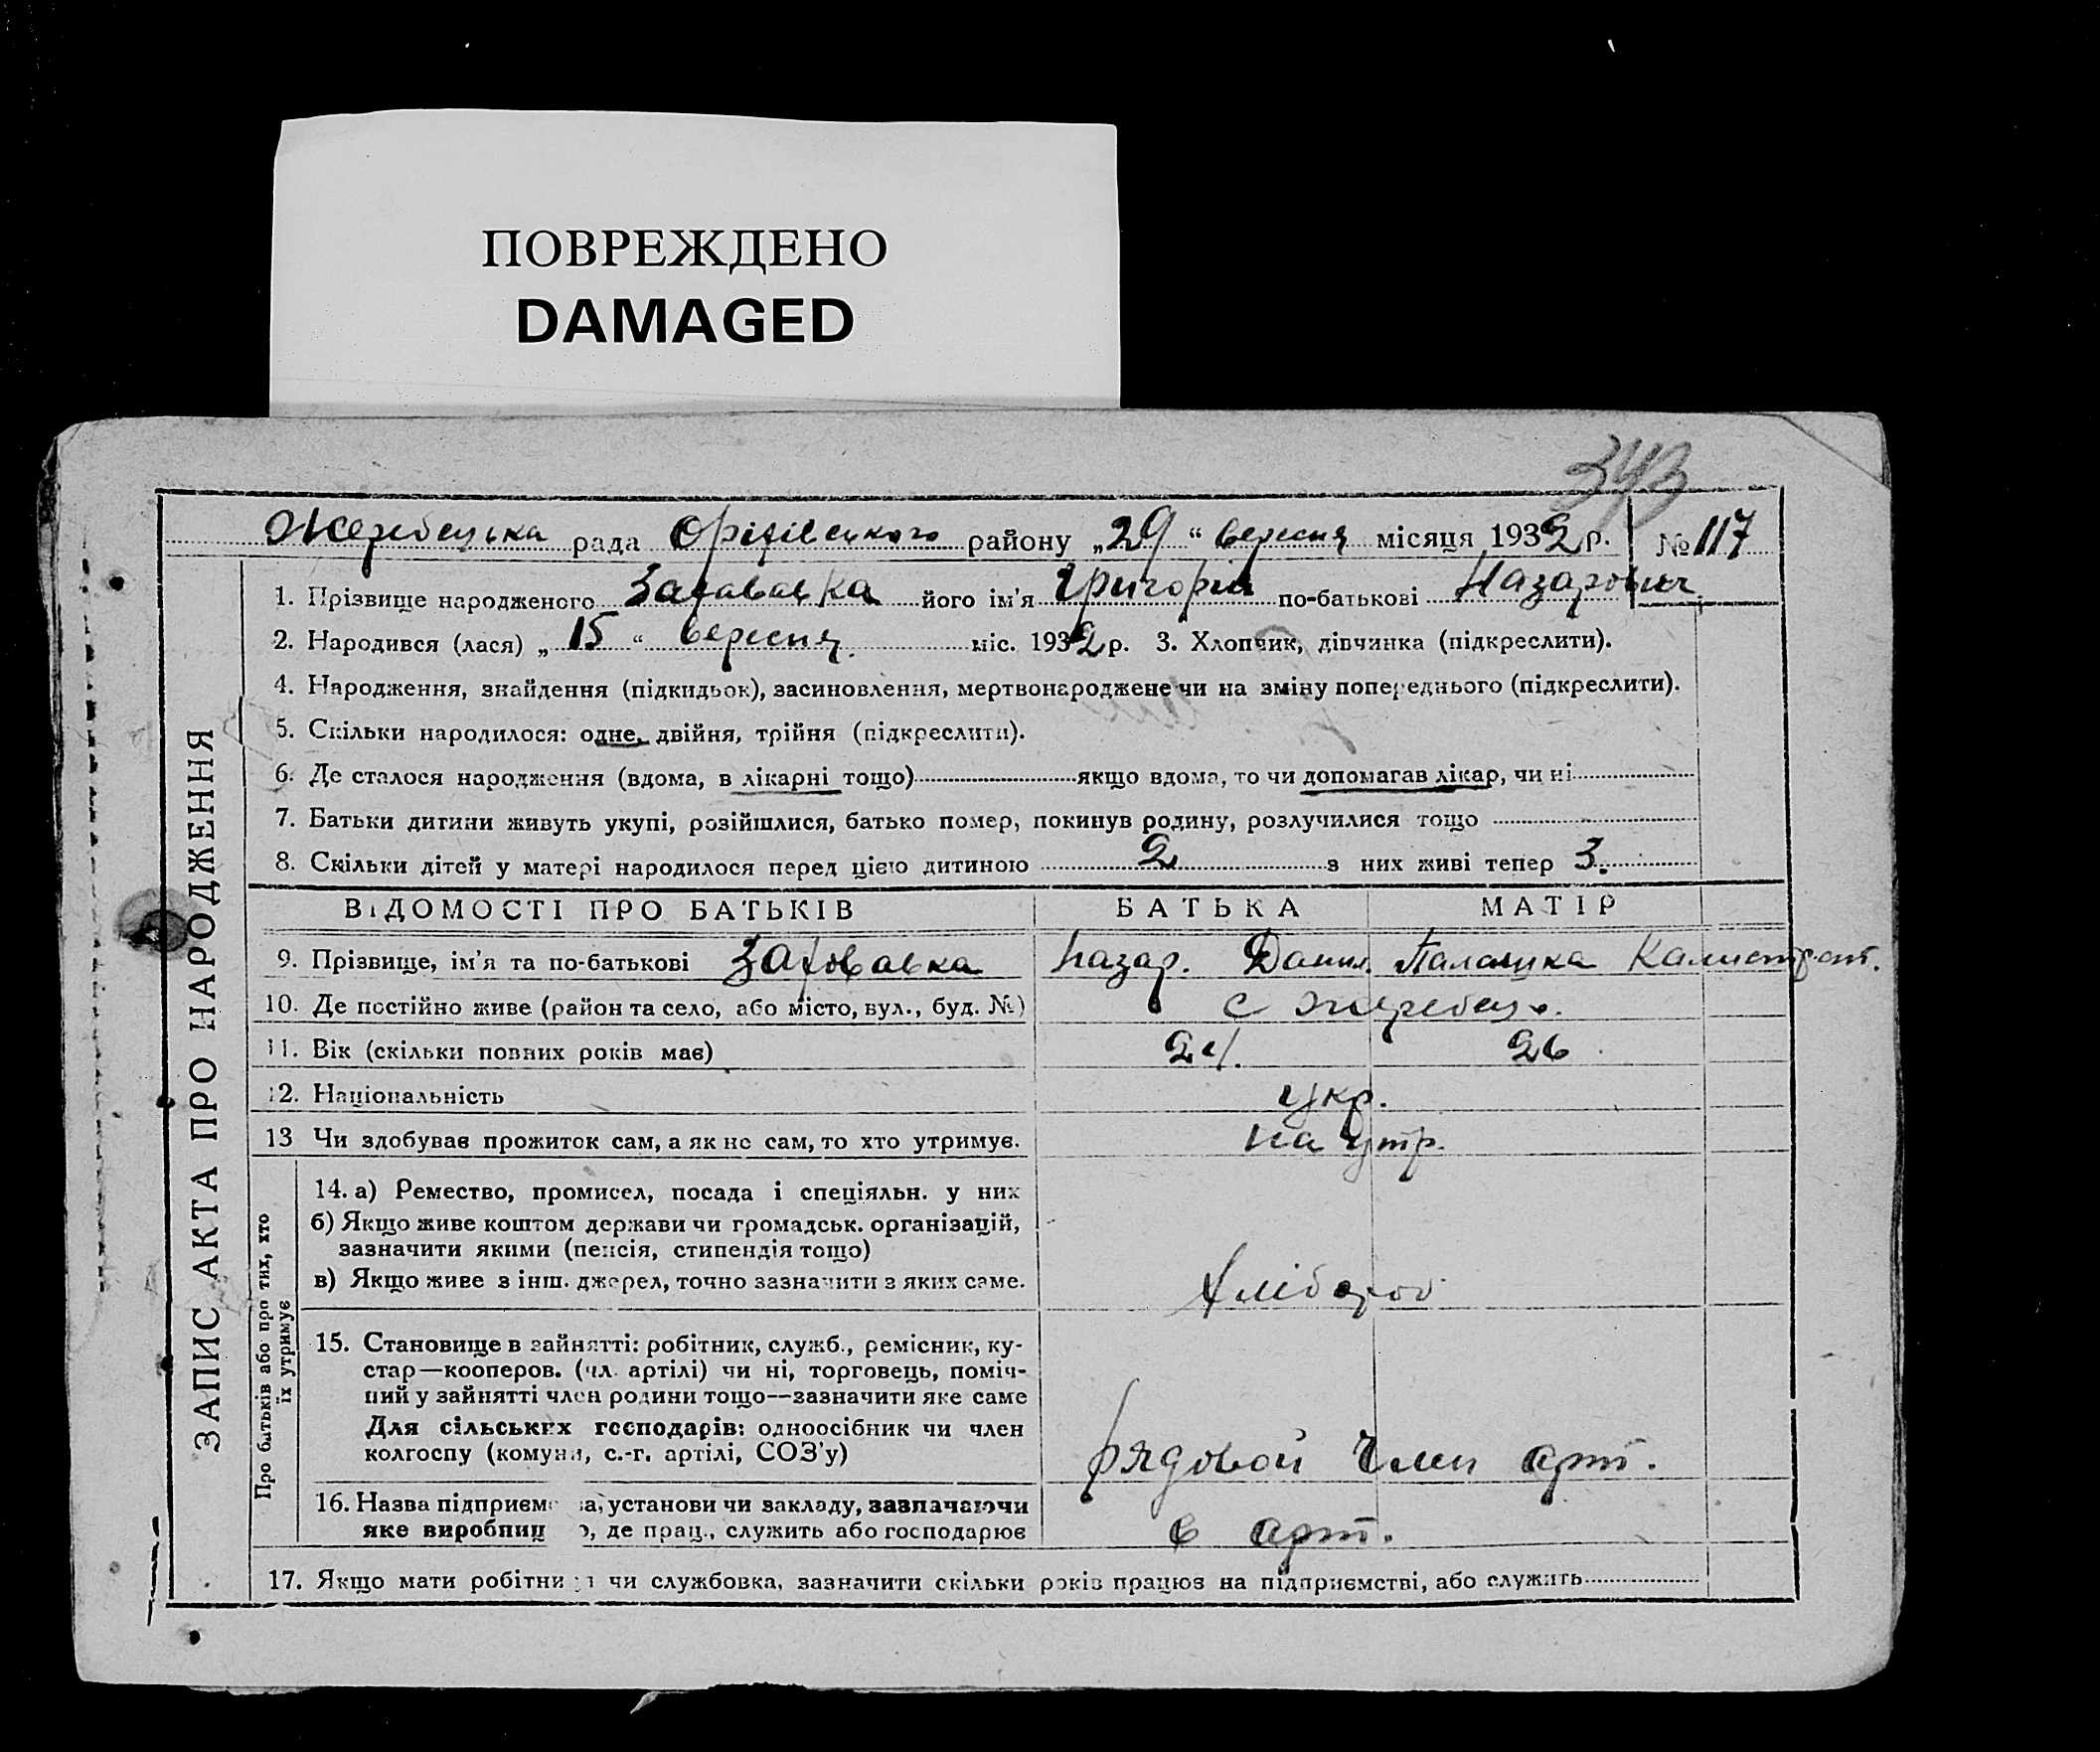 ПОВРЕЖДЕНО
DAMAGED
343
Жеребецька рада Оріхівського району „29“ вересня місяця 1932 р. № 117
ЗАПИС АКТА ПРО НАРОДЖЕННЯ
1. Прізвище народженого його ім'я Григорій по-батькові Назарович
2. Народився (лася) „15“ вересня. міс. 1932 р. 3. Хлопчик, дівчинка (підкреслити).
4. Народження, знайдення (підкидьок), засиновлення, мертвонароджене чи на зміну попереднього (підкреслити).
5. Скільки народилося: одне, двійня, трійня (підкреслити).
6. Де сталося народження (вдома, в лікарні тощо) якщо вдома, то чи допомагав лікар, чи ні
7. Батьки дитини живуть укупі, розійшлися, батько помер, покинув родину, розлучилися тощо
8. Скільки дітей у матері народилося перед цією дитиною 2 з них живі тепер 3.
ВІДОМОСТІ ПРО БАТЬКІВ БАТЬКА МАТІР
9. Прізвище, ім'я та по-батькові Назар. Данил. Палажка Калистрат.
10. Де постійно живе (район та село, або місто, вул., буд. №) с Жеребець.
11. Вік (скільки повних років має) 24. 26
12. Національність укр.
13 Чи здобуває прожиток сам, а як не сам, то хто утримує. на утр.
Про батьків або про тих, хто
їх утримує
14. а) Ремество, промисел, посада і спеціяльн. у них
б) Якщо живе коштом держави чи громадськ. організацій,
зазначити якими (пенсія, стипендія тощо)
в) Якщо живе з інш. джерел, точно зазначити з яких саме. Хлібороб
15. Становище в зайнятті: робітник, служб., ремісник, ку-
стар—кооперов. (чл. артілі) чи ні, торговець, поміч-
ний у зайнятті член родини тощо—зазначити яке саме
Для сільських господарів: одноосібник чи член
колгоспу (комуни, с.-г. артілі, СОЗ'у) рядовой член арт.
16. Назва підприєм а, установи чи закладу, зазначаючи
яке виробниц о, де прац., служить або господарює в арт.
17. Якщо мати робітни я чи службовка, зазначити скільки років працює на підприємстві, або служить